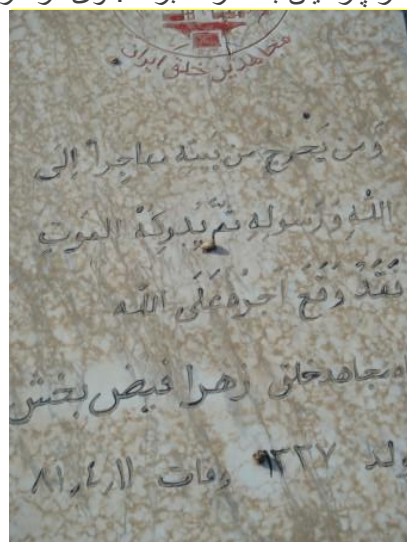 مجاهدین خلق ایران
وَمَن یَخرُج مِن بَیتِهِ مُهاجِراً إلَی
اللّهِ وَ رَسُولِهِ ثُمَّ یُدرِکهُ المَوتِ
فَقَدْ وَقَعَ اَجرُهُ عَلَی اللّه
مجاهدخلق زهرا فیض بخش
۱۳۲۷ وفات ۸۱٫٤٫۱۱